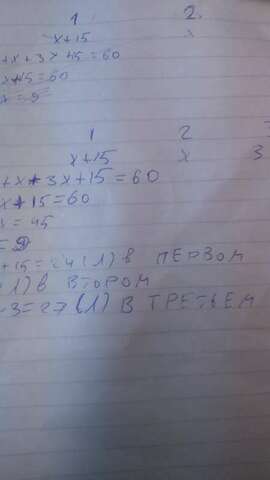 1 2.
x+15 x
+x+3x+15=60
x+15=60
x=9
1 2
x+15 x 3
+x+3x+15=60
x+15=60
=45
=9
+15=24(л) в первом
л) в втором
·3=27(л) в третьем